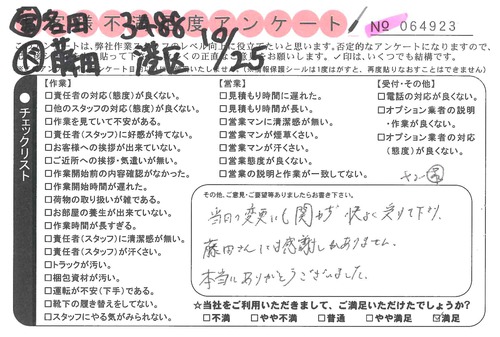 お客様不満足度アンケート
営 名田 3A88
作 藤田 港区 10/25
№ 064923
このアンケートは、弊社作業スタッフのレベル向上に役立てたいと思います。否定的なアンケートになりますので、
チェックリスト
【作業】
□責任者の対応(態度)が良くない。
□他のスタッフの対応(態度)が良くない。
□作業を見ていて不安がある。
□責任者(スタッフ)に好感が持てない。
□お客様への挨拶が出来ていない。
□ご近所への挨拶・気遣いが無い。
□作業開始前の内容確認がなかった。
□作業開始時間が遅れた。
□荷物の取り扱いが雑である。
□お部屋の養生が出来ていない。
□作業時間が長すぎる。
□責任者(スタッフ)に清潔感が無い。
□責任者(スタッフ)が汗くさい。
□トラックが汚い。
□梱包資材が汚い。
□運転が不安(下手)である。
□靴下の履き替えをしてない。
□スタッフにやる気がみられない。
【営業】
□見積もり時間に遅れた。
□見積もり時間が長い。
□営業マンに清潔感が無い。
□営業マンが煙草くさい。
□営業マンが汗くさい。
□営業態度が良くない。
□営業の説明と作業が一致してない。
【受付・その他】
□電話の対応が良くない。
□オプション業者の説明
・作業が良くない。
□オプション業者の対応
(態度)が良くない。
その他、ご意見・ご要望等ありましたらお書き下さい。
当日の変更にも関わらず快よく受けて下り
藤田さんには感謝しかありません。
本当にありがとうございました。
☆当社をご利用いただきまして、ご満足いただけたでしょうか?
□不満 □やや不満 □普通 □やや満足 ☑満足